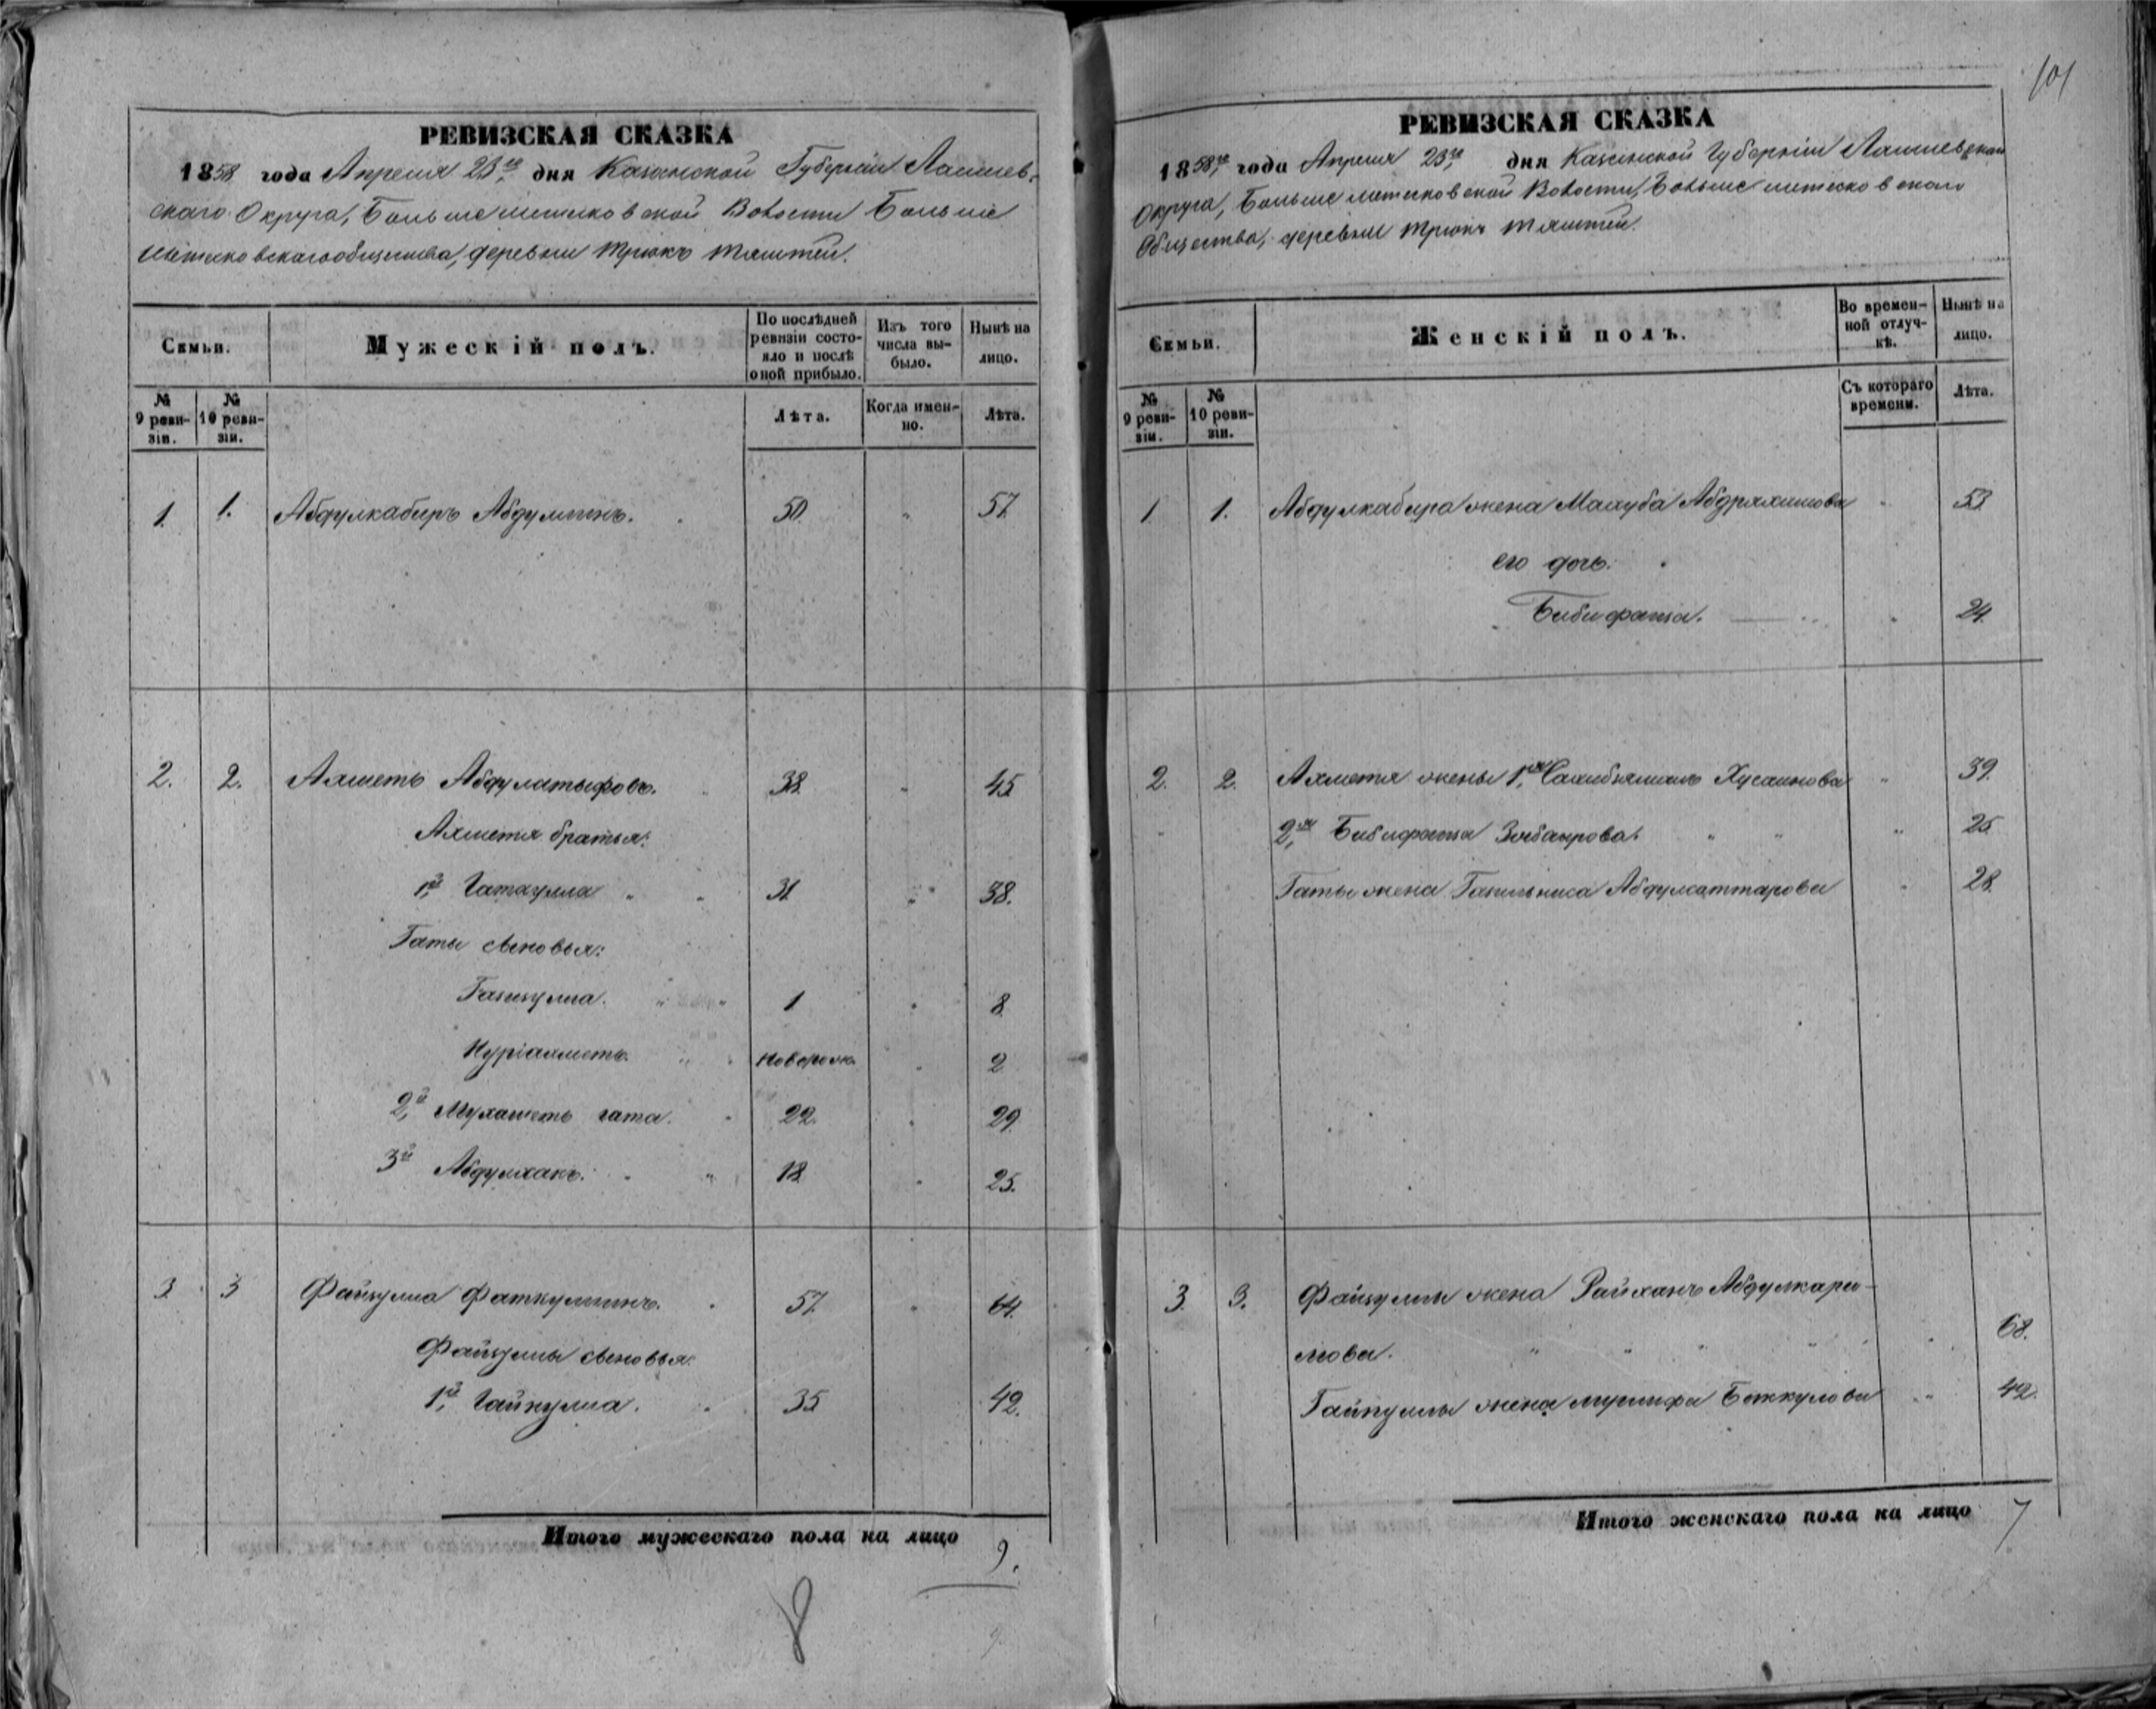 101
РЕВИЗСКАЯ СКАЗКА
1858 года Апреля 23го дня Казанской Губернии Лаишев-
скаго Округа, Больше метесковской Волости Больше
метесковскаго общества, деревни Трюкъ Тямтей.
Семьи.
Мужескій полъ.
По послѣдней ревизіи состояло и послѣ оной прибыло.
Изъ того числа выбыло.
Нынѣ на лицо.
№ 9 ревизіи.
№ 10 ревизіи.
Лѣта.
Когда именно.
Лѣта.
1. 1. Абдулкабиръ Абдулминъ. 50. " 57.
2. 2. Ахметь Абдулатыфовъ. 38. " 45
Ахметя братья:
1й Гатаулла " " 31 " 38.
Гаты сыновья:
Газизулла. " " 1 " 8.
Нуріахметь. " " Новорож. " 2
2й Мухаметь гата. " 22. " 29.
3й Абдулхакъ. " " 18. " 25.
3 3 Файзулла Фаткуллинъ. " 57. " 64.
Файзуллы сыновья:
1й Гайнулла. " 35 42.
Итого мужескаго пола на лицо 9.
РЕВИЗСКАЯ СКАЗКА
1858го года Апреля 23го дня Казанской Губерніи Лаишевскаго
Округа, Больше метесковской Волости, Больше метесковскаго
Общества, деревни Трюкъ Тямтей.
Семьи.
Женскій полъ.
Во временной отлучкѣ.
Нынѣ на лицо.
№ 9 ревизіи.
№ 10 ревизіи.
Съ котораго времени.
Лѣта.
1 1. Абдулкабира жена Маауба Абдряхимова " 53
его дочь.
Бибифатза. " 24.
2. 2. Ахметя жены 1я Сахибзямалъ Хусаинова " 39.
" 2я Бибифатза " " " 25
Гаты жена Газизниса Абдулсаттарова " 28.
3. 3. Файзуллы жена Райханъ Абдулкари-
мова. " " " " 68.
Гайнуллы жена Беккулова " 42.
Итого женскаго пола на лицо 7